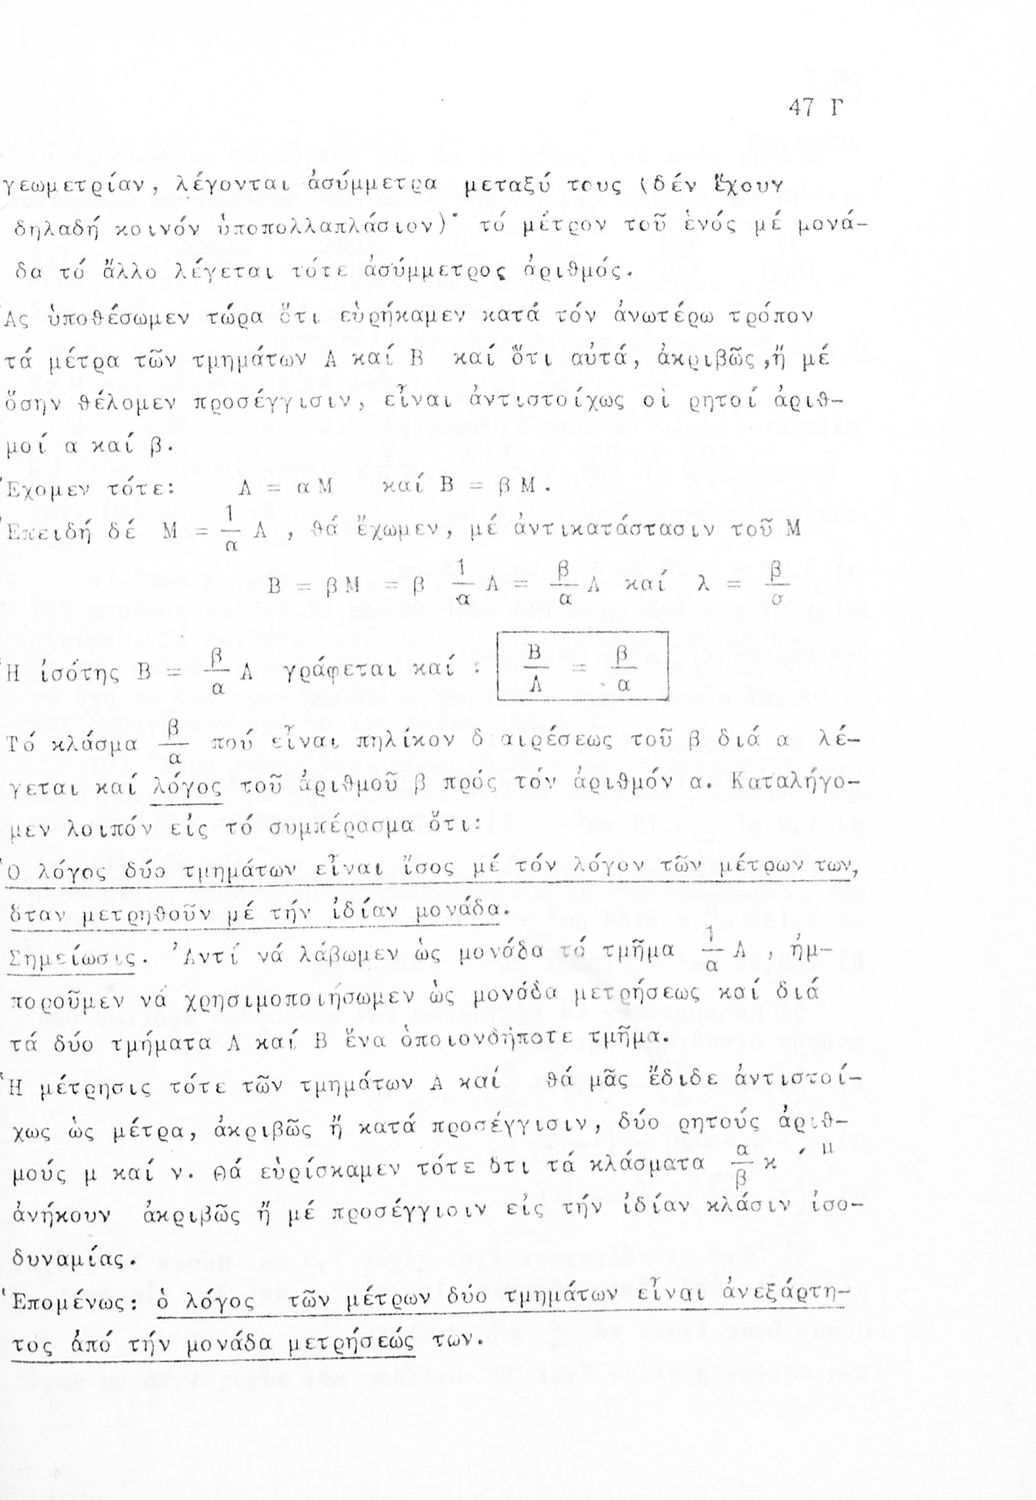 47 Γ
γεωμετρίαν, λέγονται ἀσύμμετρα μεταξύ τους (δέν ἔχουν
δηλαδή κοινόν ὑποπολλαπλάσιον)· τό μέτρον τοῦ ἑνός μέ μονά-
δα τό ἄλλο λέγεται τότε ἀσύμμετρος ἀριθμός.
Ἄς ὑποθέσωμεν τώρα ὅτι εὑρήκαμεν κατά τόν ἀνωτέρω τρόπον
τά μέτρα τῶν τμημάτων Α καί Β καί ὅτι αὐτά, ἀκριβῶς,ἤ μέ
ὅσην θέλομεν προσέγγισιν, εἶναι ἀντιστοίχως οἱ ρητοί ἀριθ-
μοί α καί β.
Ἔχομεν τότε: Α = αΜ καί Β = βΜ.
Ἐπειδή δέ Μ = 1/α Α , θά ἔχωμεν, μέ ἀντικατάστασιν τοῦ Μ
Β = βΜ = β 1/α Α = β/α Α καί λ = β/α
Ἡ ἰσότης Β = β/α Α γράφεται καί : Β/Α = β/α
Τό κλάσμα β/α πού εἶναι πηλίκον δ αιρέσεως τοῦ β διά α λέ-
γεται καί λόγος τοῦ ἀριθμοῦ β πρός τόν ἀριθμόν α. Καταλήγο-
μεν λοιπόν εἰς τό συμπέρασμα ὅτι:
Ὁ λόγος δύο τμημάτων εἶναι ἴσος μέ τόν λόγον τῶν μέτρων των,
ὅταν μετρηθοῦν μέ τήν ἰδίαν μονάδα.
Σημείωσις. Ἀντί νά λάβωμεν ὡς μονάδα τό τμῆμα 1/α Α , ἠμ-
ποροῦμεν νά χρησιμοποιήσωμεν ὡς μονάδα μετρήσεως καί διά
τά δύο τμήματα Α καί Β ἕνα ὁποιονδήποτε τμῆμα.
Ἡ μέτρησις τότε τῶν τμημάτων Α καί θά μᾶς ἔδιδε ἀντιστοί-
χως ὡς μέτρα, ἀκριβῶς ἤ κατά προσέγγισιν, δύο ρητούς ἀριθ-
μούς μ καί ν. Θά εὑρίσκαμεν τότε ὅτι τά κλάσματα α/β κ ´ μ
ἀνήκουν ἀκριβῶς ἤ μέ προσέγγισιν εἰς τήν ἰδίαν κλάσιν ἰσο-
δυναμίας.
Ἑπομένως: ὁ λόγος τῶν μέτρων δύο τμημάτων εἶναι ἀνεξάρτη-
τος ἀπό τήν μονάδα μετρήσεώς των.